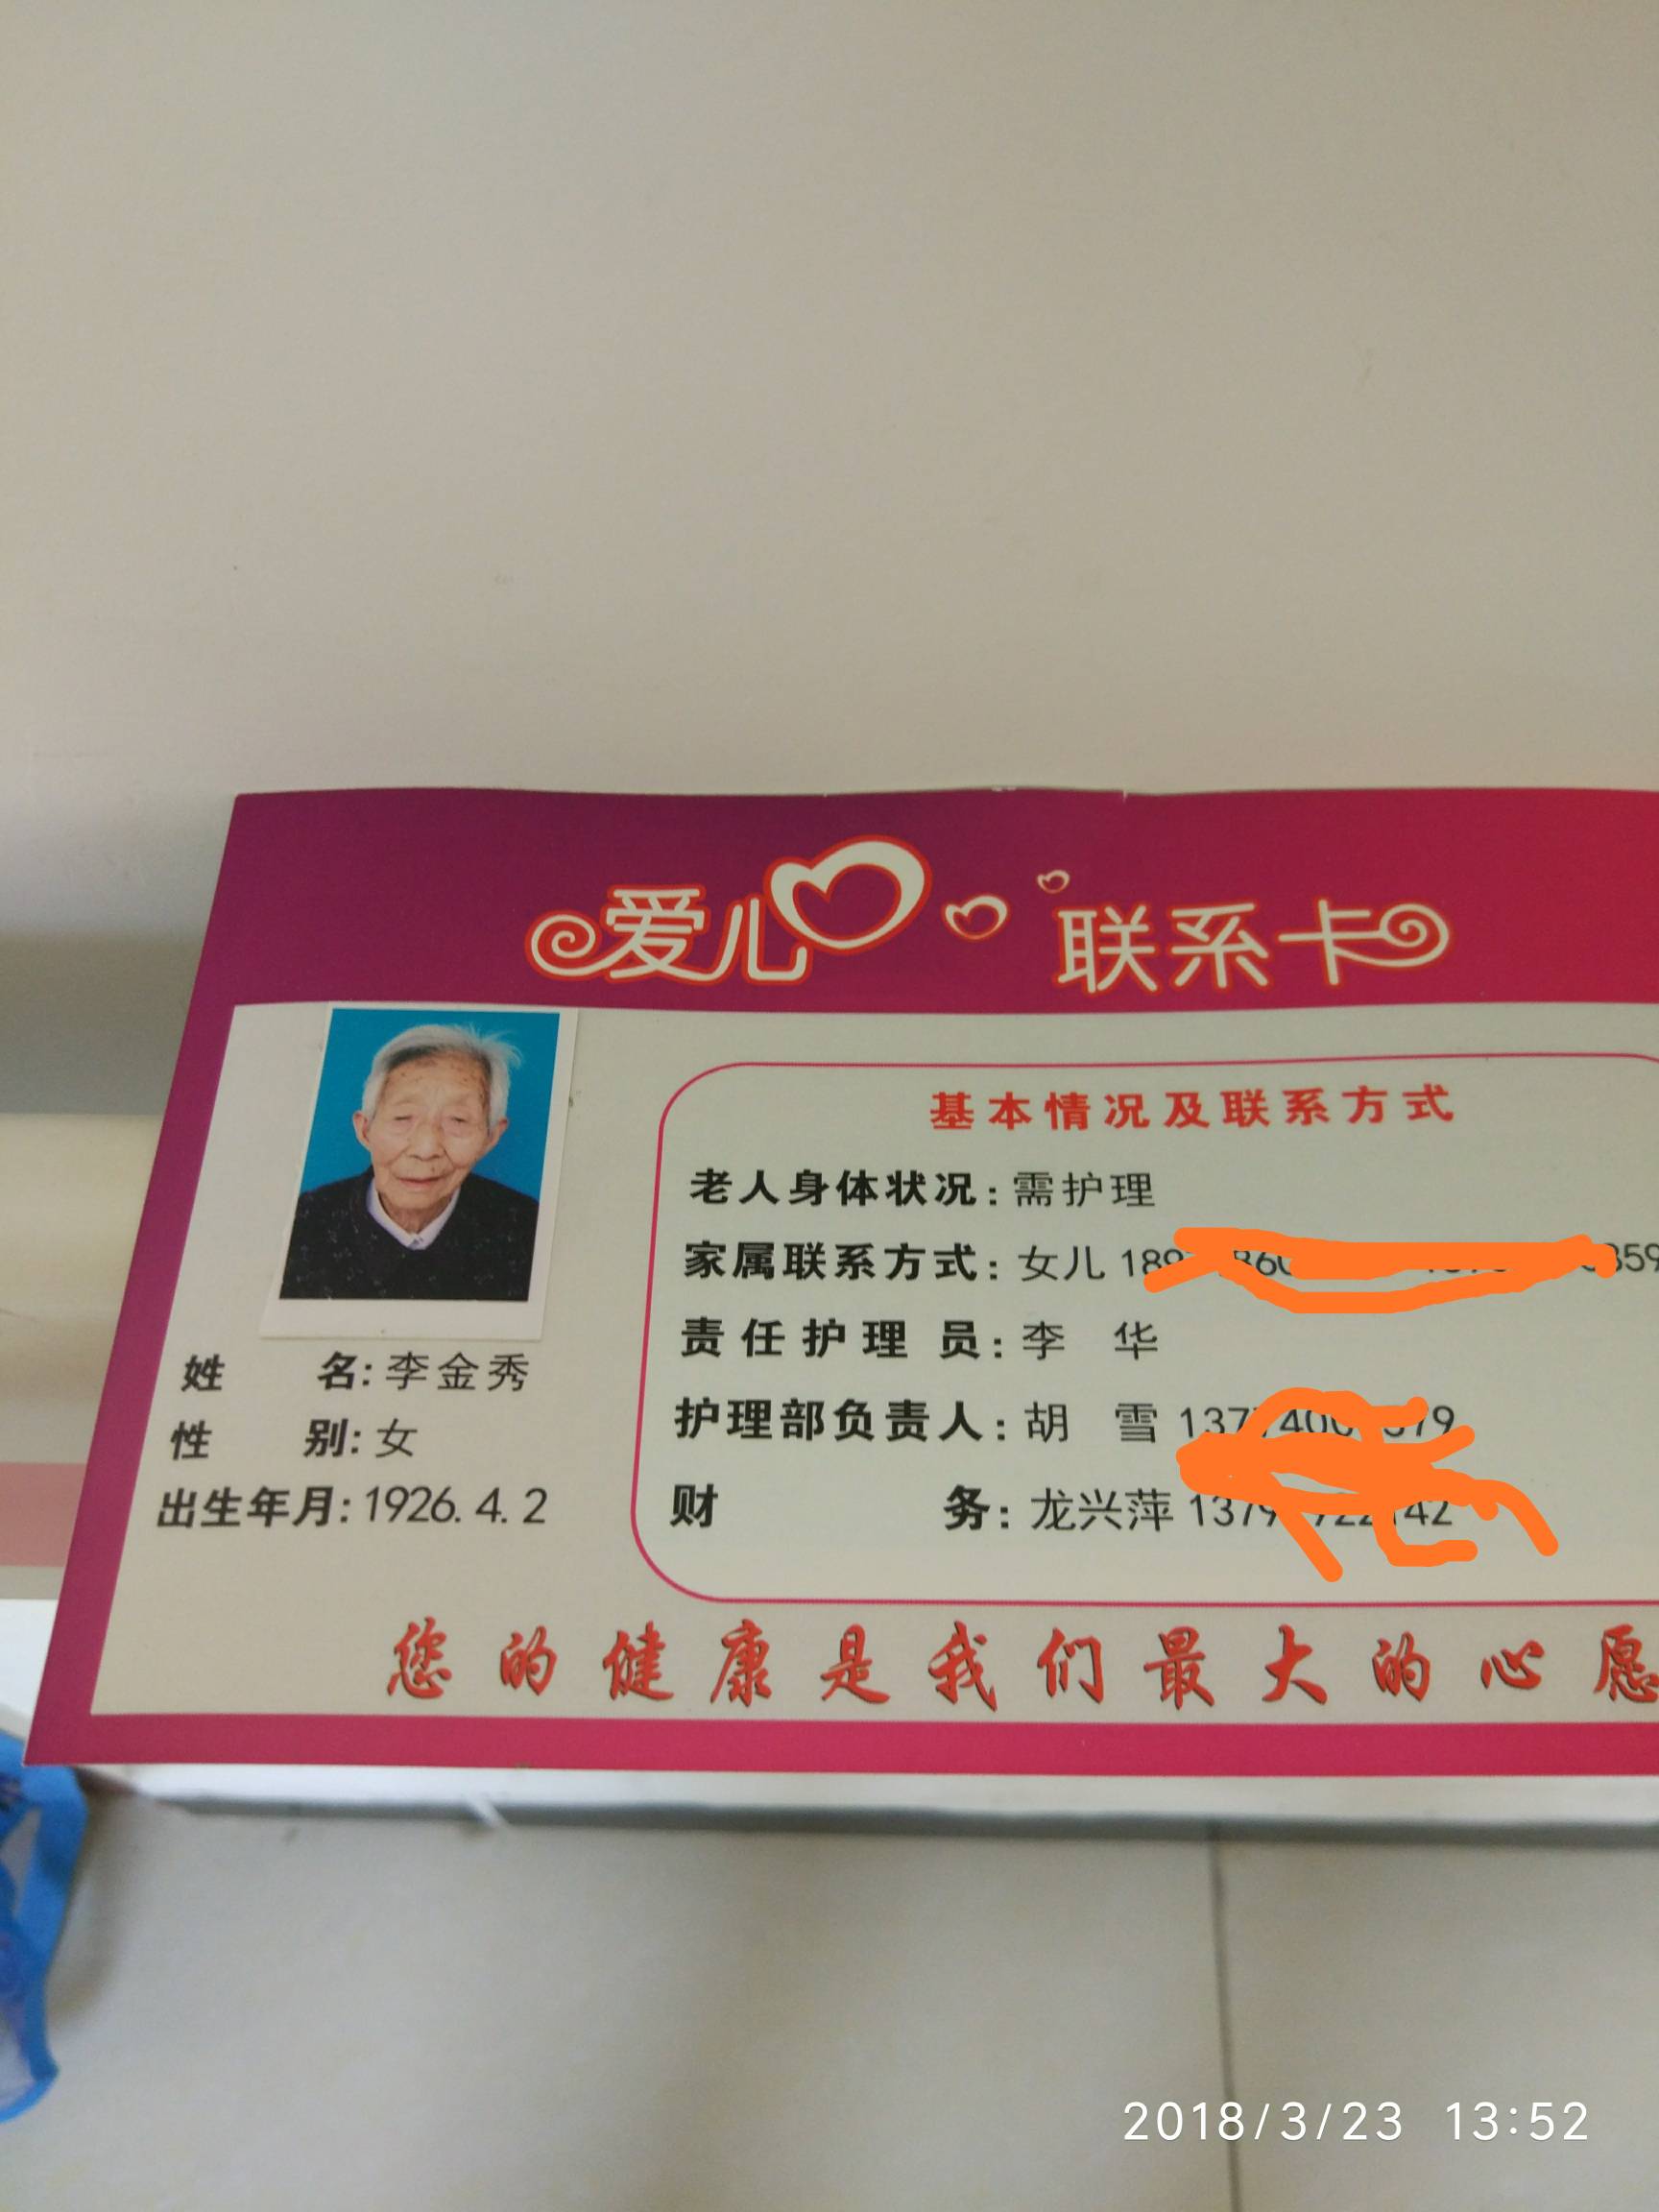 爱心 联系卡
基本情况及联系方式
老人身体状况：需护理
家属联系方式：女儿
责任护理员：李 华
护理部负责人：胡 雪
财 务：龙兴萍
姓 名：李金秀
性 别：女
出生年月：1926.4.2
您的健康是我们最大的心愿
2018/3/23 13:52